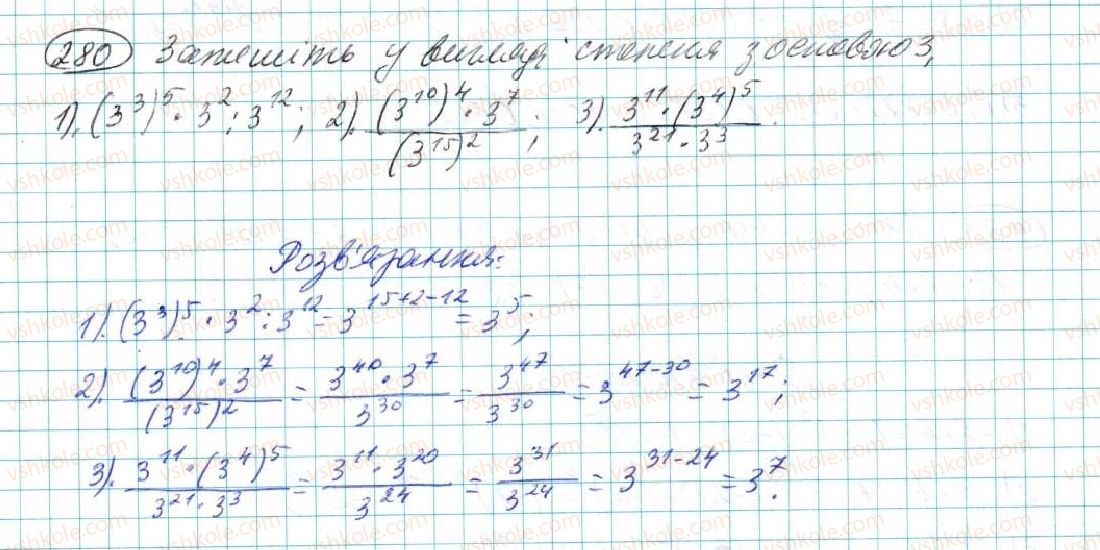 280 Запишіть у вигляді степеня з основою 3,
1). (3³)⁵ · 3² : 3¹²; 2). (3¹⁰)⁴ · 3⁷ / (3¹⁵)²; 3). 3¹¹ · (3⁴)⁵ / 3²¹ · 3³.
Розв'язання:
1). (3³)⁵ · 3² : 3¹² = 3¹⁵⁺²⁻¹² = 3⁵;
2). (3¹⁰)⁴ · 3⁷ / (3¹⁵)² = 3⁴⁰ · 3⁷ / 3³⁰ = 3⁴⁷ / 3³⁰ = 3⁴⁷⁻³⁰ = 3¹⁷;
3). 3¹¹ · (3⁴)⁵ / 3²¹ · 3³ = 3¹¹ · 3²⁰ / 3²⁴ = 3³¹ / 3²⁴ = 3³¹⁻²⁴ = 3⁷.